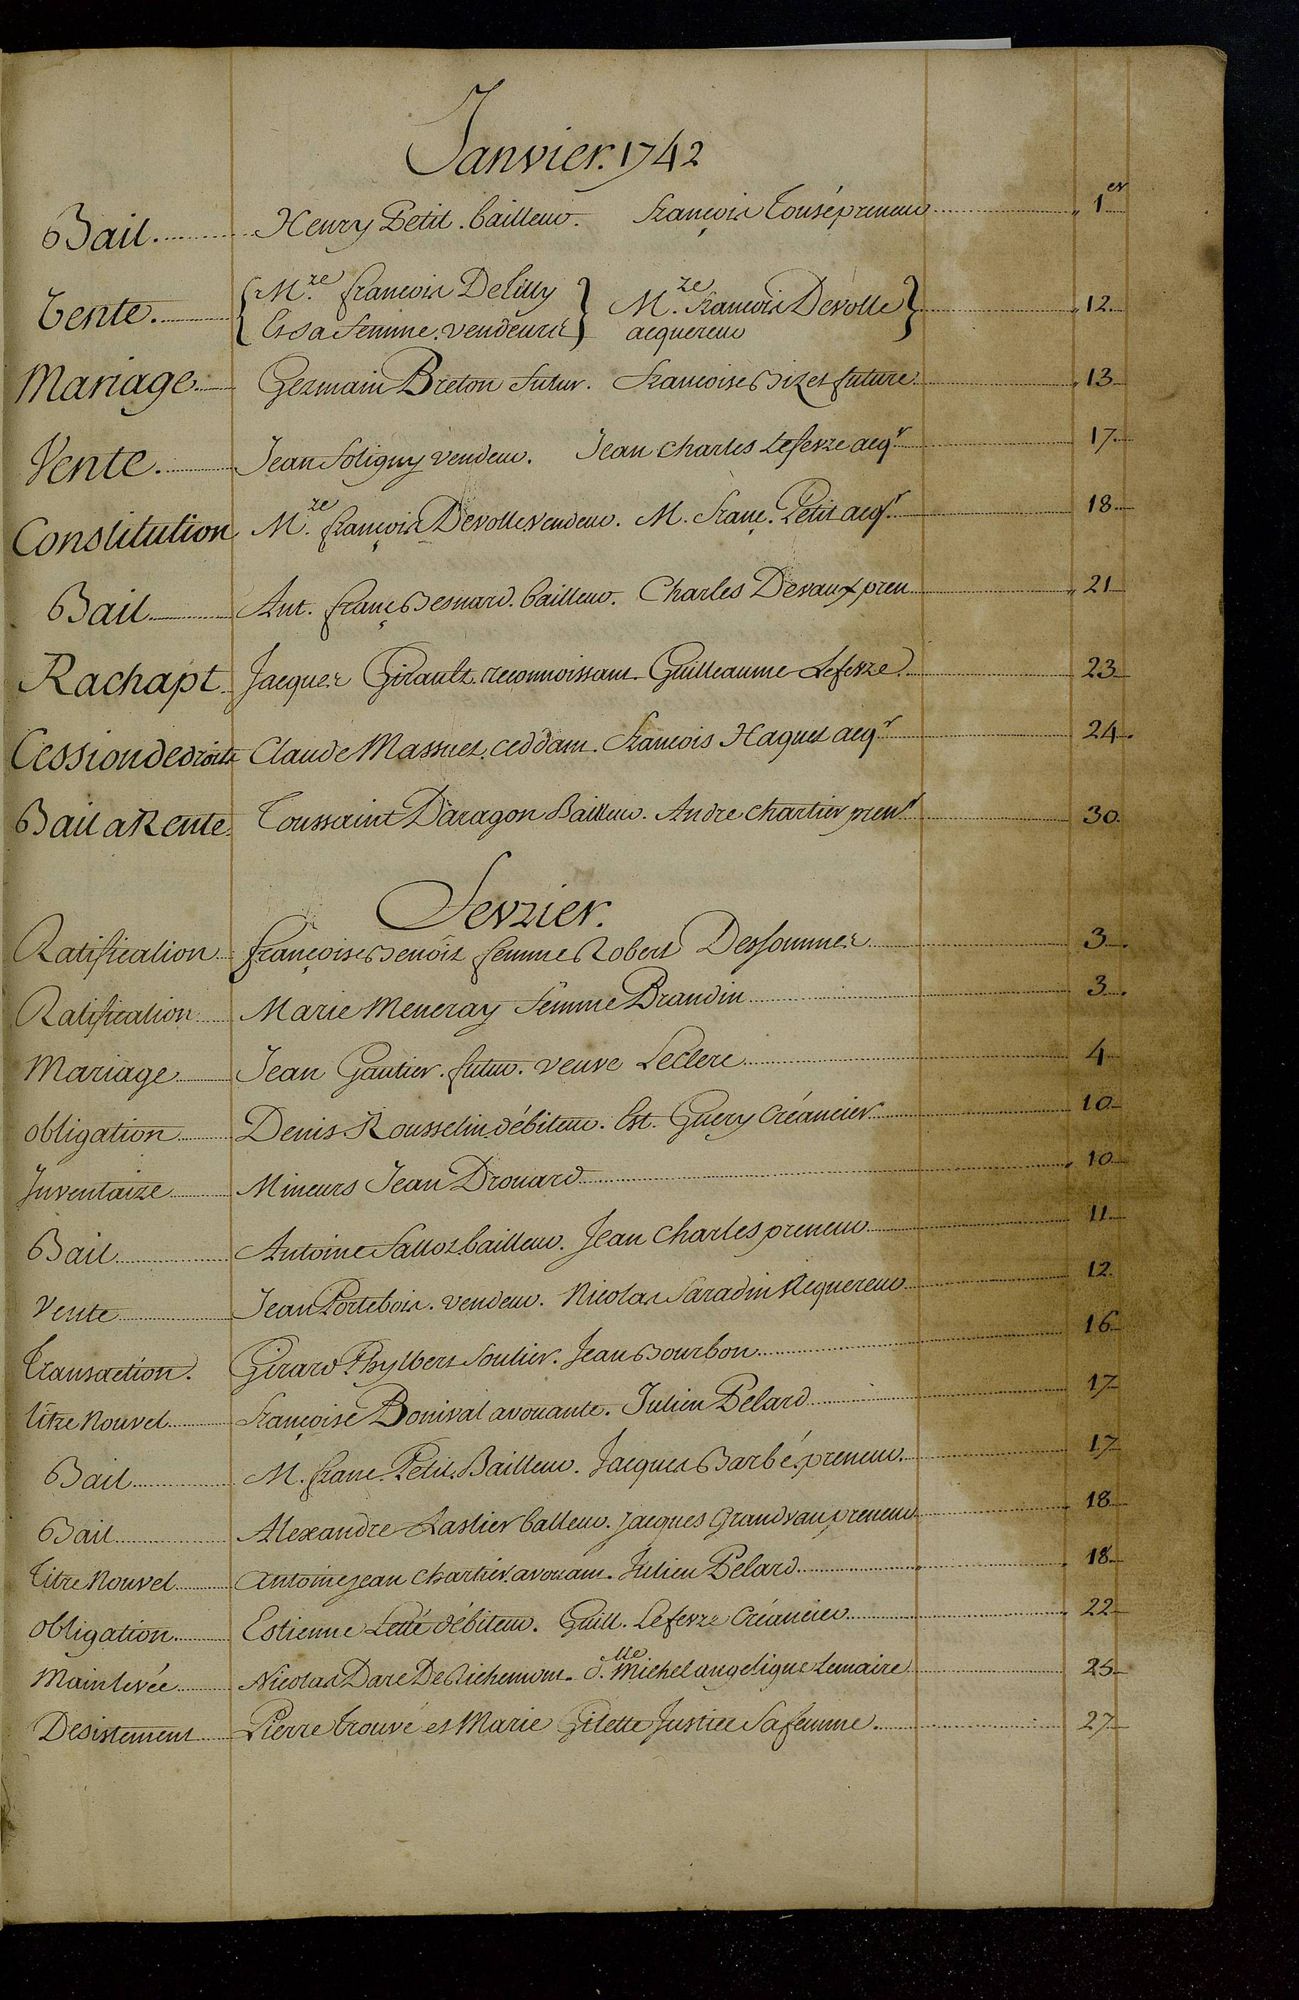 Janvier. 1742
Bail. Henry Petit. bailleur. François Tousé preneur 1er
Vente. Mre. françois Delilly Mre. françois Devolle 12.
Et sa femme. vendeurs acquereur
Mariage Germain Breton futur. Françoise Bizet future. 13
Vente. Jean Soligny vendeur. Jean Charles Lefevre acqr 17.
Constitution Mre. françois Devolle vendeur. M. Franç. Petit acqr. 18
Bail Ant. franç Besnard. bailleur. Charles Devaux pren 21
Rachapt Jacques Girault. reconnoissant. Guilleaume Lefevre. 23
Cession de droits Claude Massuet. ceddant. François Haquet acqr 24.
Bail a Rente. Toussaint Daragon Bailleur. Andre chartier prenr 30.
Fevrier.
Ratification françoise Benoist femme Robert Dessommes 3.
Ratification Marie Meneray femme Brandin 3.
Mariage Jean Gautier. futur. veuve Leclerc 4
obligation Denis Rousselin débiteur. Est. Guery Créancier 10
Inventaire Mineurs Jean Drouard 10
Bail Antoine Sallot bailleur. Jean Charles preneur 11
Vente Jean Portebois. vendeur. Nicolas Saradin Acquereur 12.
Transaction. Girard Phylbert Soulier. Jean Bourbon 16
titre Nouvel Françoise Bonival avouante. Julien Pelard 17
Bail M. franc. Petit. Bailleur. Jacques Barbé. preneur. 17
Bail Alexandre Lastier balleur. Jacques Grandvau preneur 18
Titre Nouvel antoine jean chartier. avouant. Julien Pelard 18
obligation. Estienne Letté débiteur. Guill. Lefevre Créancier 22
Mainlevée Nicolas Dare De Richemont. dlle. Michel angelique Lemaire 25
Desistement Pierre trouvé et Marie Gilette Justice Sa femme. 27